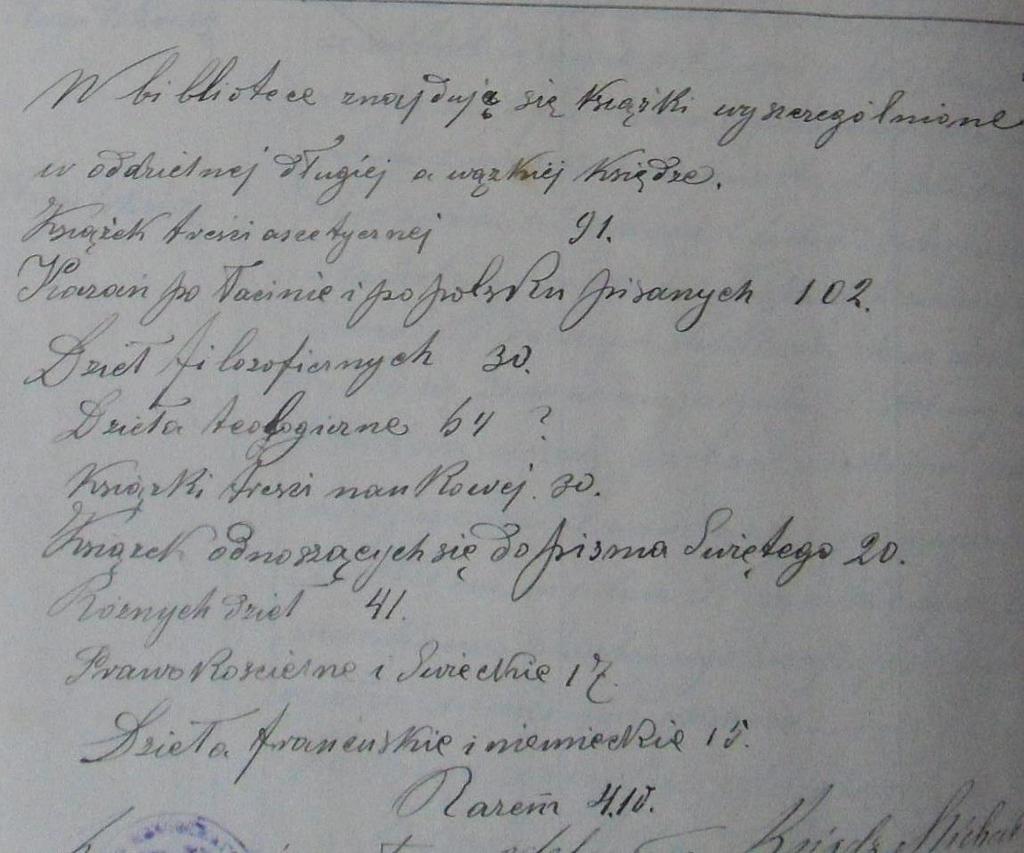 W bibliotece znajdują się książki wyszczególnione
w oddzielnej długiej a wązkiej księdze.
Książek treści ascetycznej 91.
Kazań po łacinie i po polsku pisanych 102.
Dzieł filozoficznych 30.
Dzieła teologiczne 64 ?
Książki treści naukowej. 30.
Książek odnoszących się do pisma Świętego 20.
Różnych dzieł 41.
Prawo Kościelne i Świeckie 17.
Dzieła francuskie i niemieckie 15.
Razem 410.
Ksiądz Michał